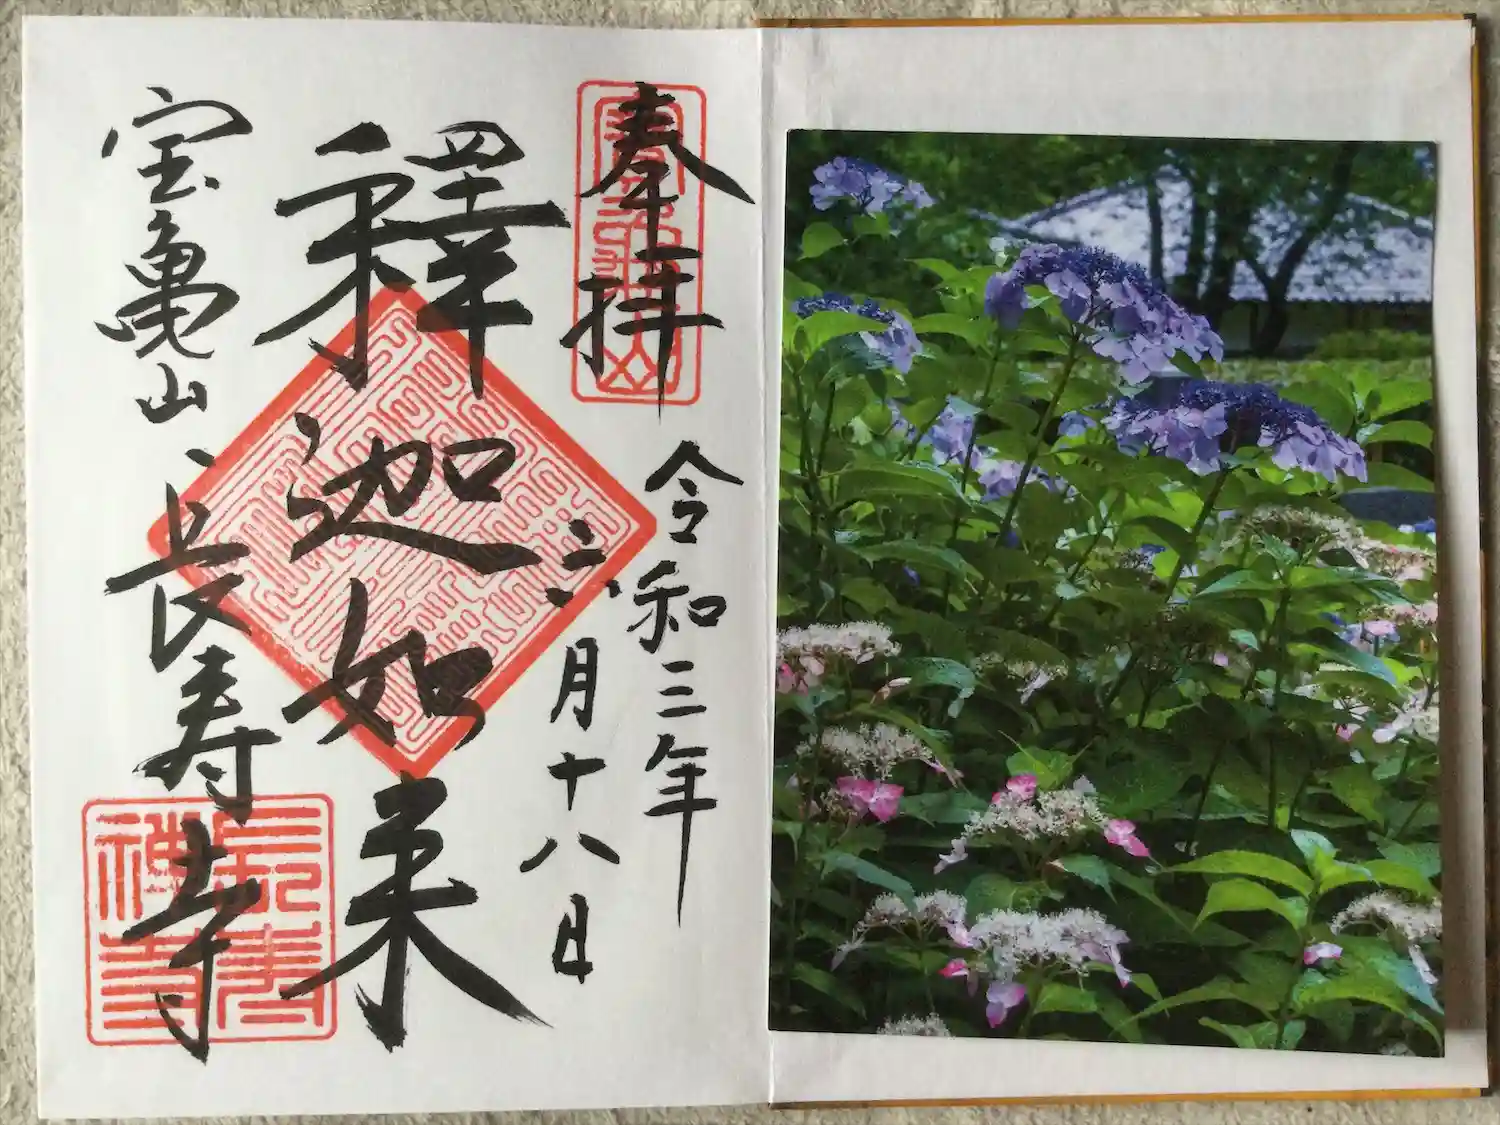 奉拝
令和三年
六月十八日
釋迦如来
宝亀山
長寿寺
長寿
禅寺